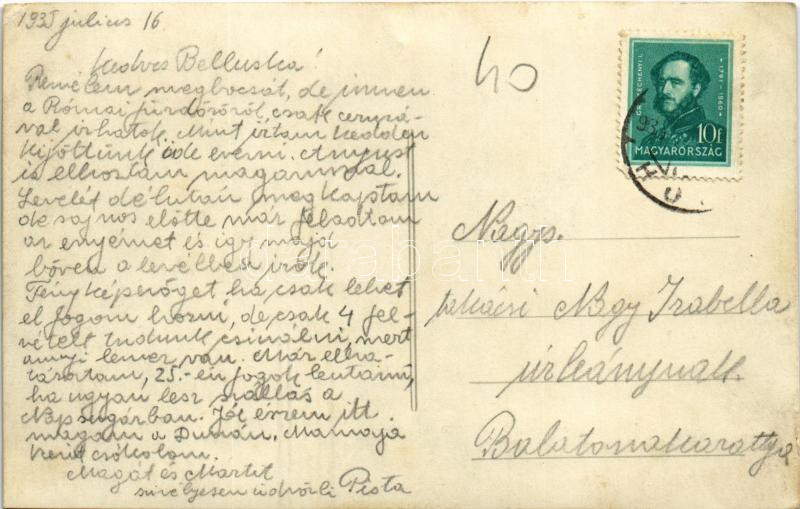 1935 julius 16
Kedves Belluska!
Remélem megbocsát, de innen
a Római fürdőről csak ceruzá-
val írhatok. Mint írtam kedden
kijöttünk ide evezni. Anyust
is elhoztam magammal.
Levelét délután megkaptam
de sajnos előtte már feladtam
az enyémet és így majd
bőven a levélben írok.
Fényképezőgépet ha csak lehet
el fogom hozni, de csak 4 fel-
vételt tudunk csinálni, mert
annyi lemez van. Már elha-
tároztam, 25.-én fogok leutazni,
ha ugyan lesz szállás a
Napsugárban. Jól érzem itt
magam a Dunán. Mamája
kezeit csókolom.
Magát és Martit
szívélyesen üdvözli Pista
40
GR. SZÉCHENYI I.
1791-1860
10f
MAGYARORSZÁG
Nagys.
takácsi Nagy Izabella
úrleánynak
Balatonakarattya
darabanth